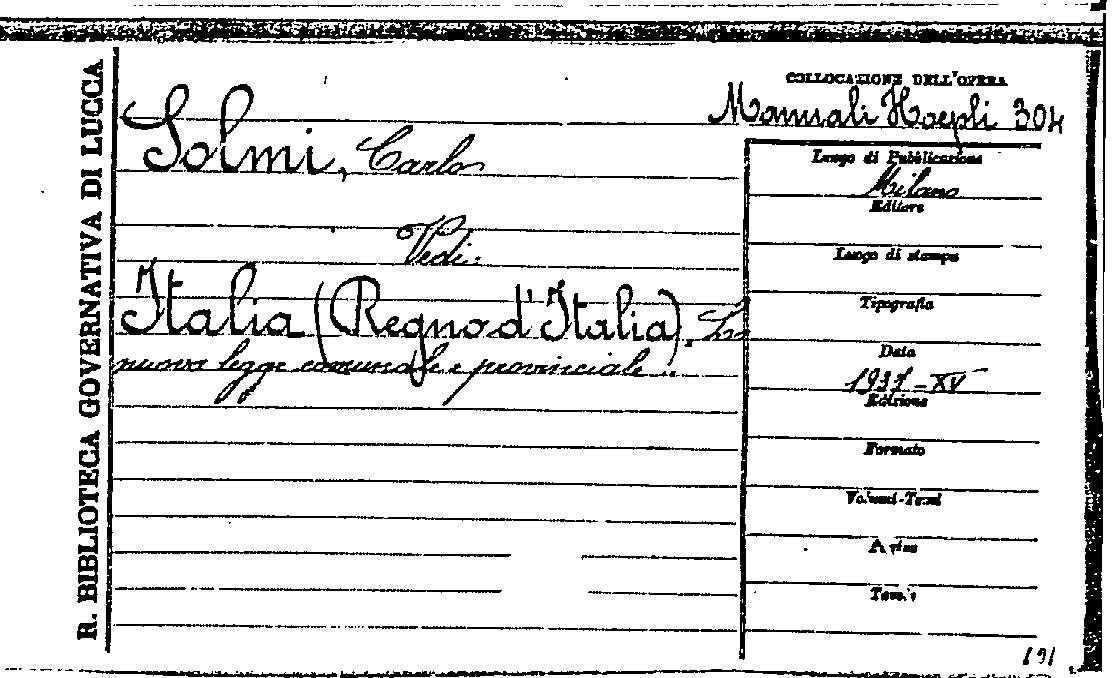 R. BIBLIOTECA GOVERNATIVA DI LUCCA
COLLOCAZIONE DELL'OPERA
Manuali Hoepli 304
Solmi, Carlo
Vedi:
Italia (Regno d'Italia). La
nuova legge comunale e provinciale ..
Luogo di Pubblicazione
Milano
Editore
Luogo di stampa
Tipografia
Data
1937-XV
Edizione
Formato
Volumi-Tomi
Tavole
191